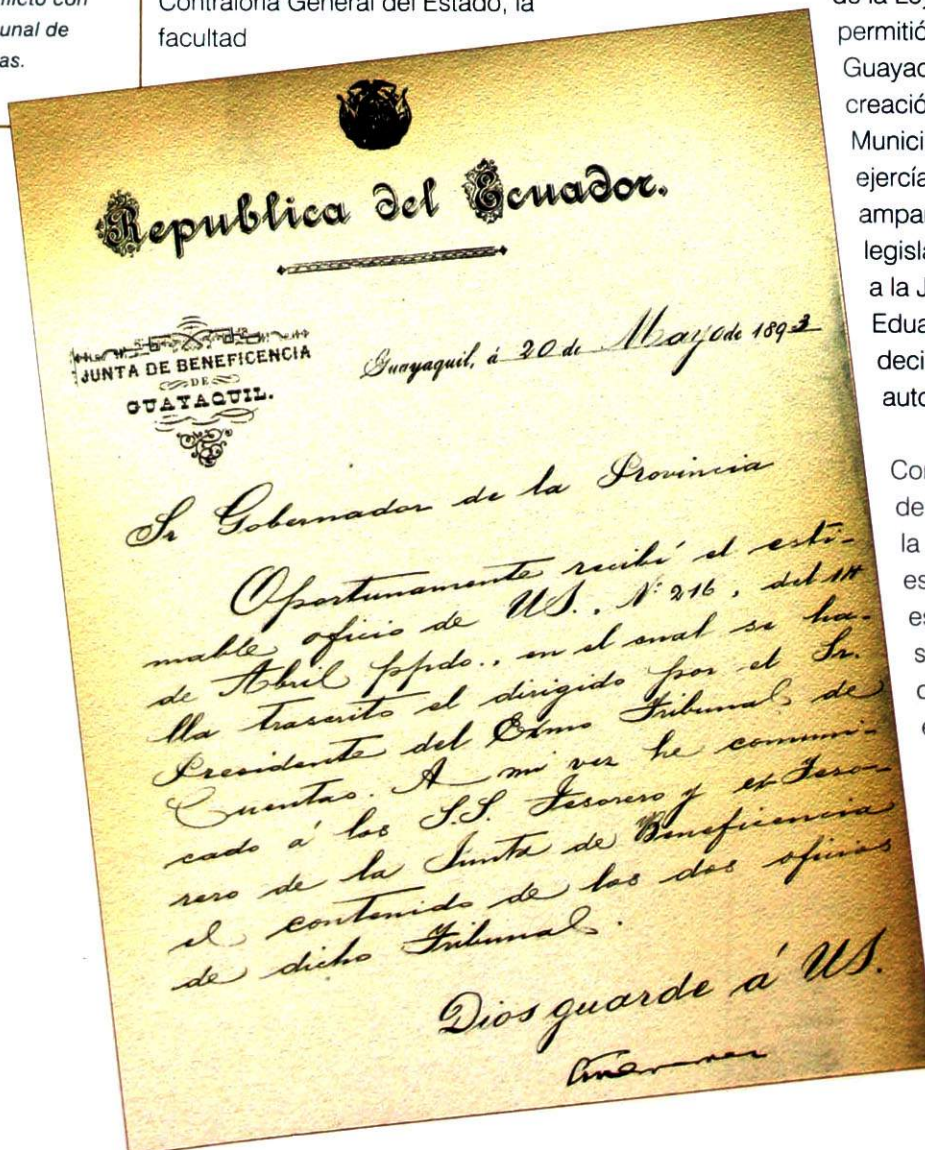 flicto con
unal de
as.
Contraloría General del Estado, la
facultad
Republica del Ecuador.
JUNTA DE BENEFICENCIA
DE
GUAYAQUIL.
Guayaquil, á 20 de Mayo de 1893
Sr Gobernador de la Provincia
Oportunamente recibí el esti-
mable oficio de US., Nº 216, del 14
de Abril ppdo., en el cual se ha-
lla trascrito el dirigido por el Sr.
Presidente del Exmo Tribunal de
Cuentas. A mi vez he comuni-
cado á los S.S. Tesorero y ex-Teso-
rero de la Junta de Beneficencia
el contenido de los dos oficios
de dicho Tribunal.
Dios guarde á US.
de la Ley
permitió
Guayaq
creació
Munici
ejercía
ampar
legisla
a la J
Edua
deci
auto
Cor
de
la
es
es
s